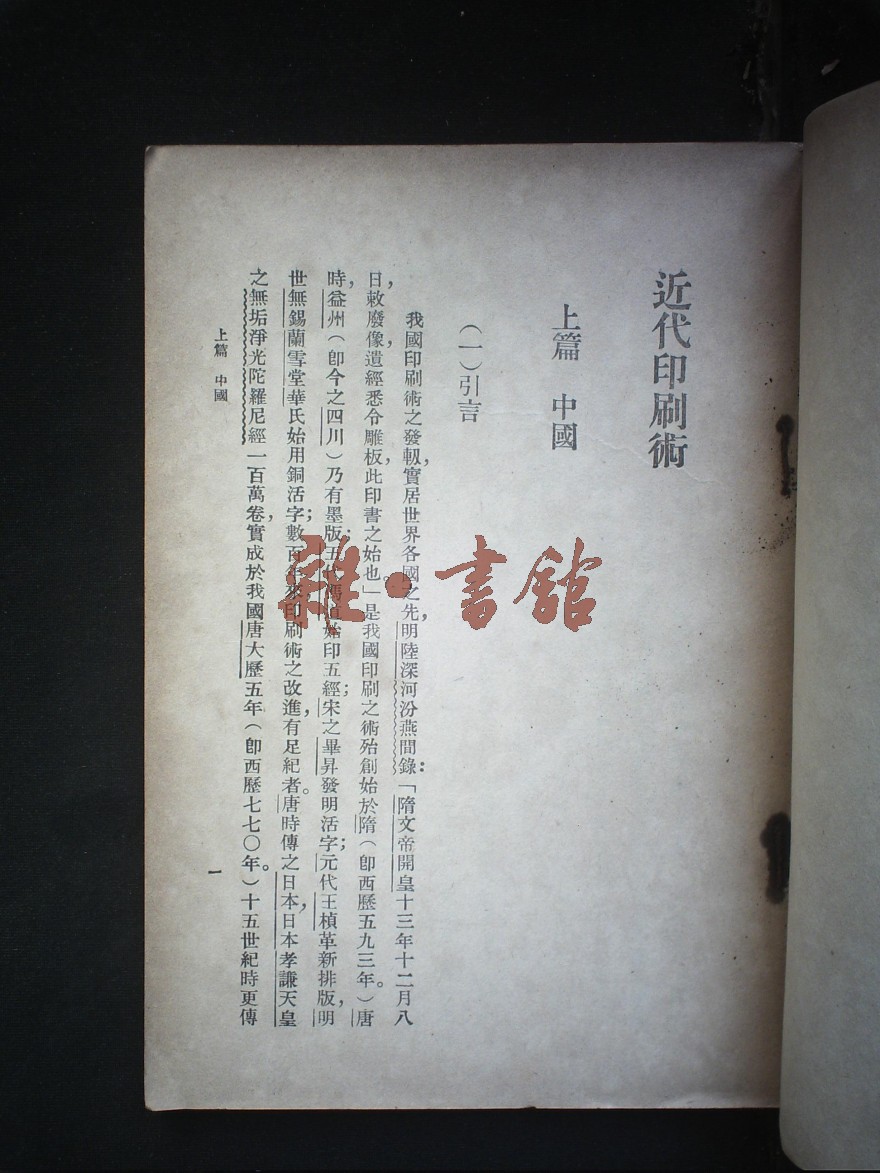 近代印刷術
上篇 中國
（一）引言
我國印刷術之發軔，實居世界各國之先，明陸深河汾燕閒錄：「隋文帝開皇十三年十二月八
日，敕廢像，遺經悉令雕板，此印書之始也。」是我國印刷之術殆創始於隋（卽西歷五九三年。）唐
時，益州（卽今之四川）乃有墨版；五代馮道始印五經；宋之畢昇發明活字；元代王楨革新排版，明
世無錫蘭雪堂華氏始用銅活字；數百年來印刷術之改進，有足紀者。唐時傳之日本，日本孝謙天皇
之無垢淨光陀羅尼經一百萬卷，實成於我國唐大歷五年（卽西歷七七〇年。）十五世紀時更傳
上篇 中國
一
雜·書館